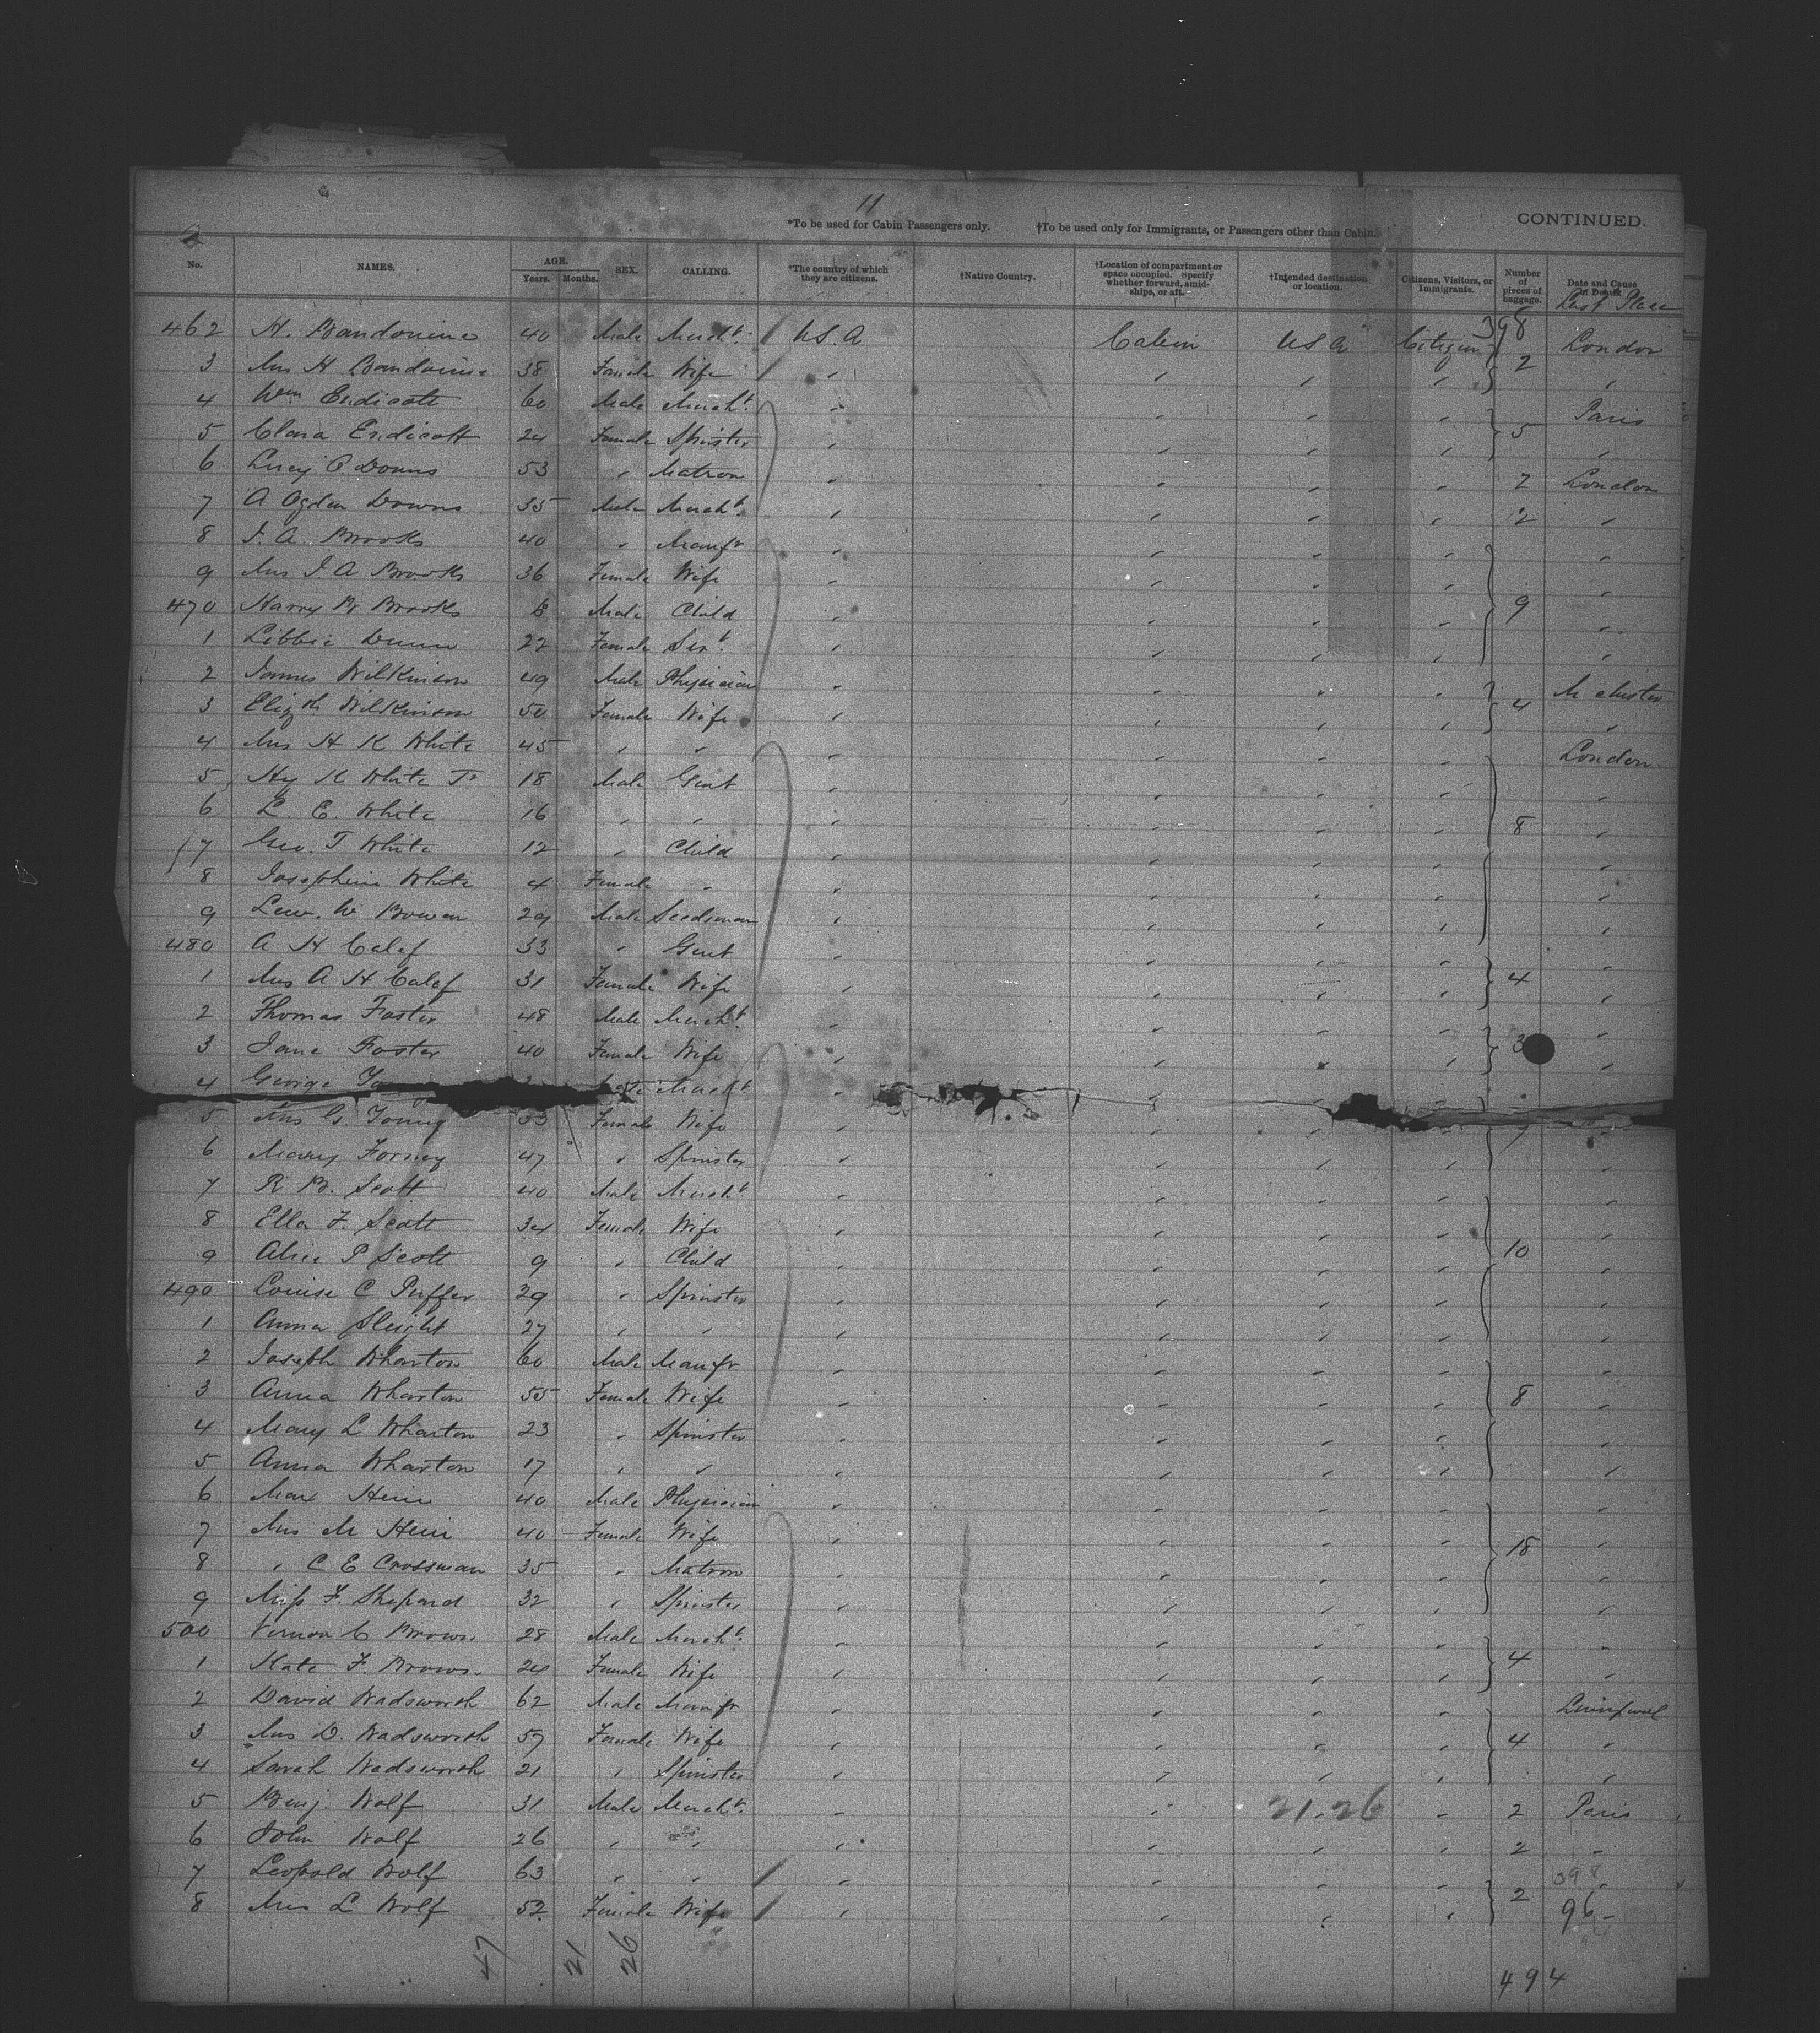 11
*To be used for Cabin Passengers only. †To be used only for Immigrants, or Passengers other than Cabin. CONTINUED.
No. NAMES. AGE. Years. Months. SEX. CALLING. *The country of which they are citizens. †Native Country. †Location of compartment or space occupied. Specify whether forward, amidships, or aft. †Intended destination or location. Citizens, Visitors, or Immigrants. Number of pieces of baggage. Date and Cause of Death
Last Place
398
462 H. Baudouine 40 Male Mercht. U.S.A Cabin U.S.A Citizen 2 London
3 Mrs H Baudouine 38 Female Wife " " " " "
4 Wm Endicott 60 Male Mercht. " " " " Paris
5 Clara Endicott 24 Female Spinster " " " " 5 "
6 Lucy Downs 53 " Matron " " " " 2 London
7 A Ogden Downs 35 Male Mercht. " " " " 2 "
8 J. A. Brooks 40 " Manfr " " " " "
9 Mrs J. A Brooks 36 Female Wife " " " " "
470 Harry Brooks 6 Male Child " " " " 9 "
1 Libbie Dunn 22 Female Servt. " " " " "
2 James Wilkinson 49 Male Physician " " " " M chister
3 Elizth Wilkinson 50 Female Wife " " " " 4 "
4 Mrs H K White 45 " " " " " " London
5 Hy K White Jr 18 Male Gent " " " " "
6 L. E. White 16 " " " " " " 8 "
7 Geo. T White 12 " Child " " " " "
8 Josephine White 4 Female " " " " " "
9 Lew. W Bowen 29 Male Seedsman " " " " "
480 A H Calef 33 " Gent " " " " "
1 Mrs A H Calef 31 Female Wife " " " " 4 "
2 Thomas Foster 48 Male Mercht. " " " " "
3 Jane Foster 40 Female Wife " " " " 3 "
4 George Male Mercht " "
5 Mrs G. Young 33 Female Wife " " " " "
6 Mary Forney 47 " Spinster " " " " "
7 R B. Scott 40 Male Mercht " " " " "
8 Ella F. Scott 34 Female Wife " " " " "
9 Alice P Scott 9 " Child " " " " 10 "
490 Louise C Puffer 29 " Spinster " " " " "
1 Anna Sleight 27 " " " " " " "
2 Joseph Wharton 60 Male Manfr " " " " "
3 Anna Wharton 55 Female Wife " " " " 8 "
4 Mary L Wharton 23 " Spinster " " " " "
5 Anna Wharton 17 " " " " " " "
6 Max Hein 40 Male Physician " " " " "
7 Mrs M Hein 40 Female Wife " " " " 18 "
8 " C E Crossman 35 " Matron " " " " "
9 Miss F. Shepard 32 " Spinster " " " " "
500 Vernon C Brown 28 Male Mercht. " " " " "
1 Kate F. Brown 24 Female Wife " " " " 4 "
2 David Wadsworth 62 Male Manfr " " " " Liverpool
3 Mrs D. Wadsworth 57 Female Wife " " " " 4 "
4 Sarah Wadsworth 21 " Spinster " " " " "
5 Benj. Wolf 31 Male Mercht. " " 21-26 " 2 Paris
6 John Wolf 26 " " " " " " 2 "
7 Leopold Wolf 63 " " " " " " 398
8 Mrs L Wolf 52 Female Wife " " " " 2 96-
47 21 26 494